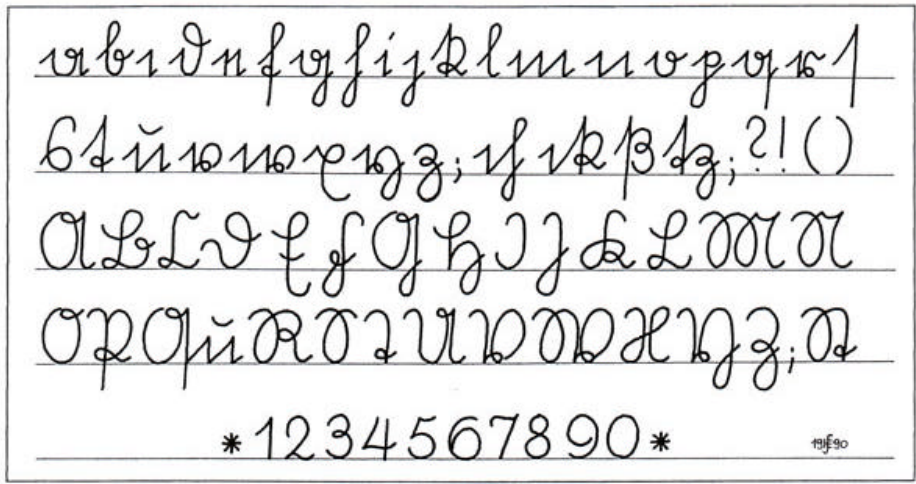 abcdefghijklmnopqrſ
stuvwxyz;chckßtz;?!()
ABCDEFGHIJKLMN
OPQuRSTUVWXYZ;St
*1234567890*